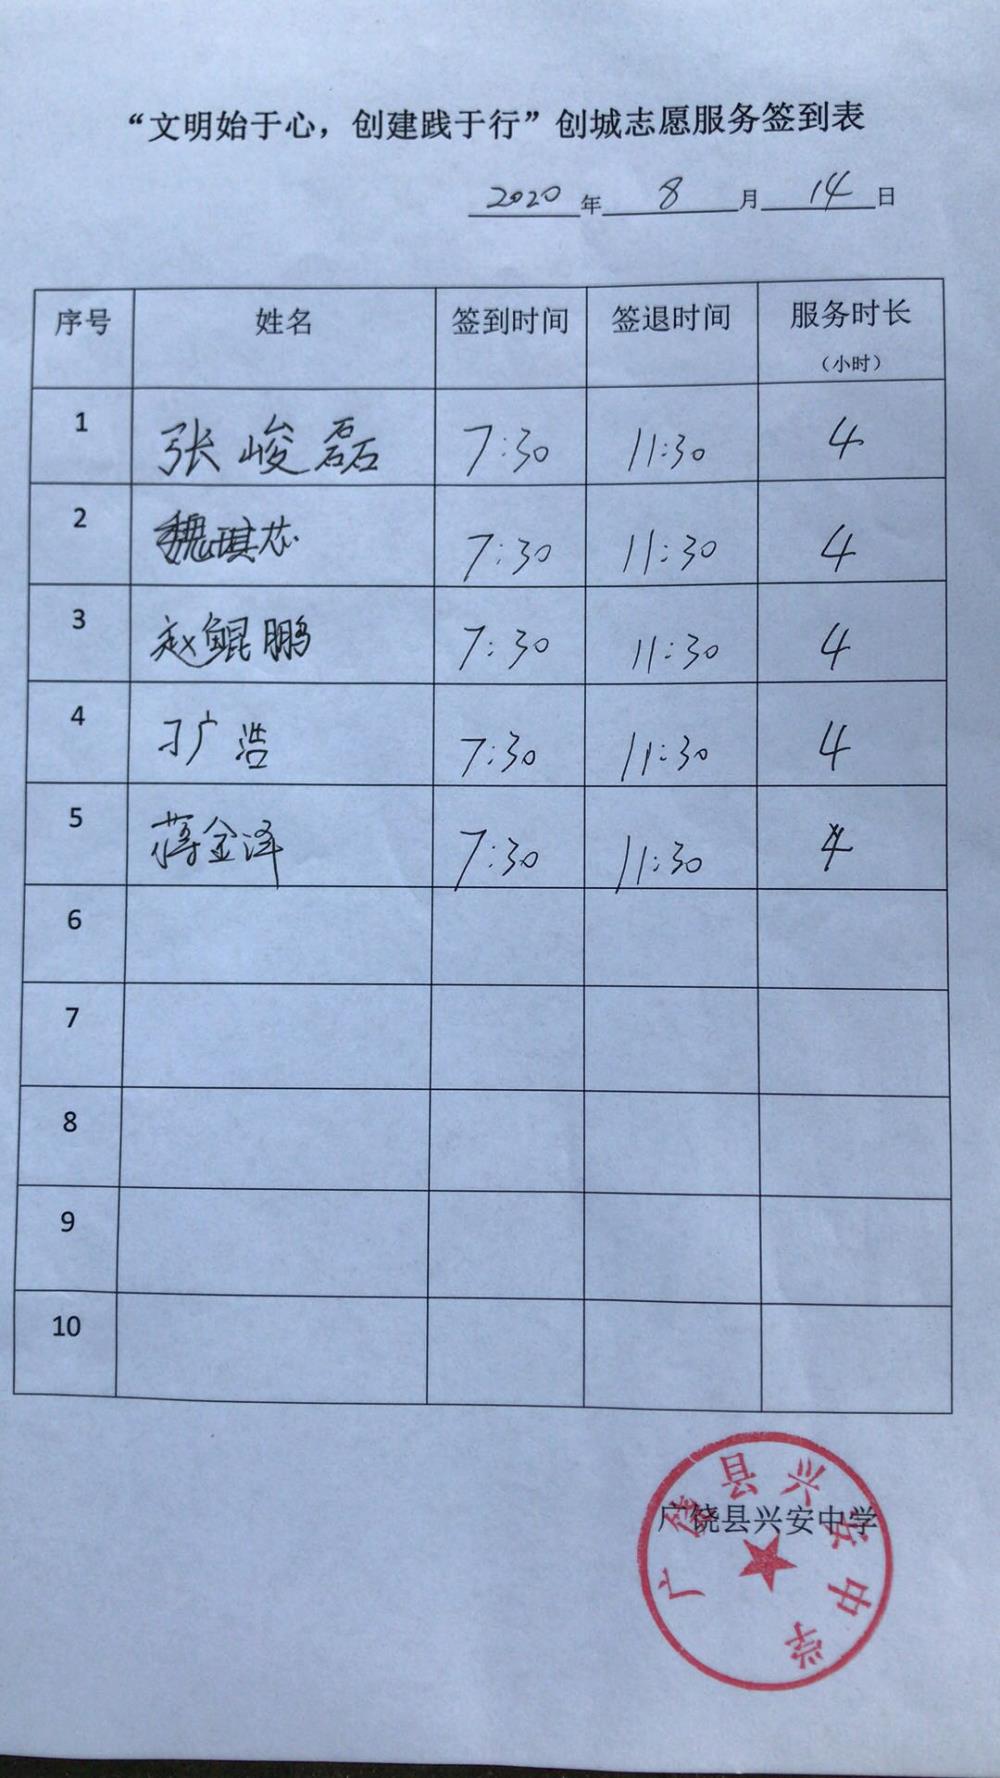 “文明始于心，创建践于行”创城志愿服务签到表
2020年 8 月 14 日
序号 姓名 签到时间 签退时间 服务时长（小时）
1 张峻磊 7:30 11:30 4
2 魏琪芯 7:30 11:30 4
3 赵鲲鹏 7:30 11:30 4
4 刁广浩 7:30 11:30 4
5 蒋金泽 7:30 11:30 4
6
7
8
9
10
广饶县兴安中学
广饶县兴安中学